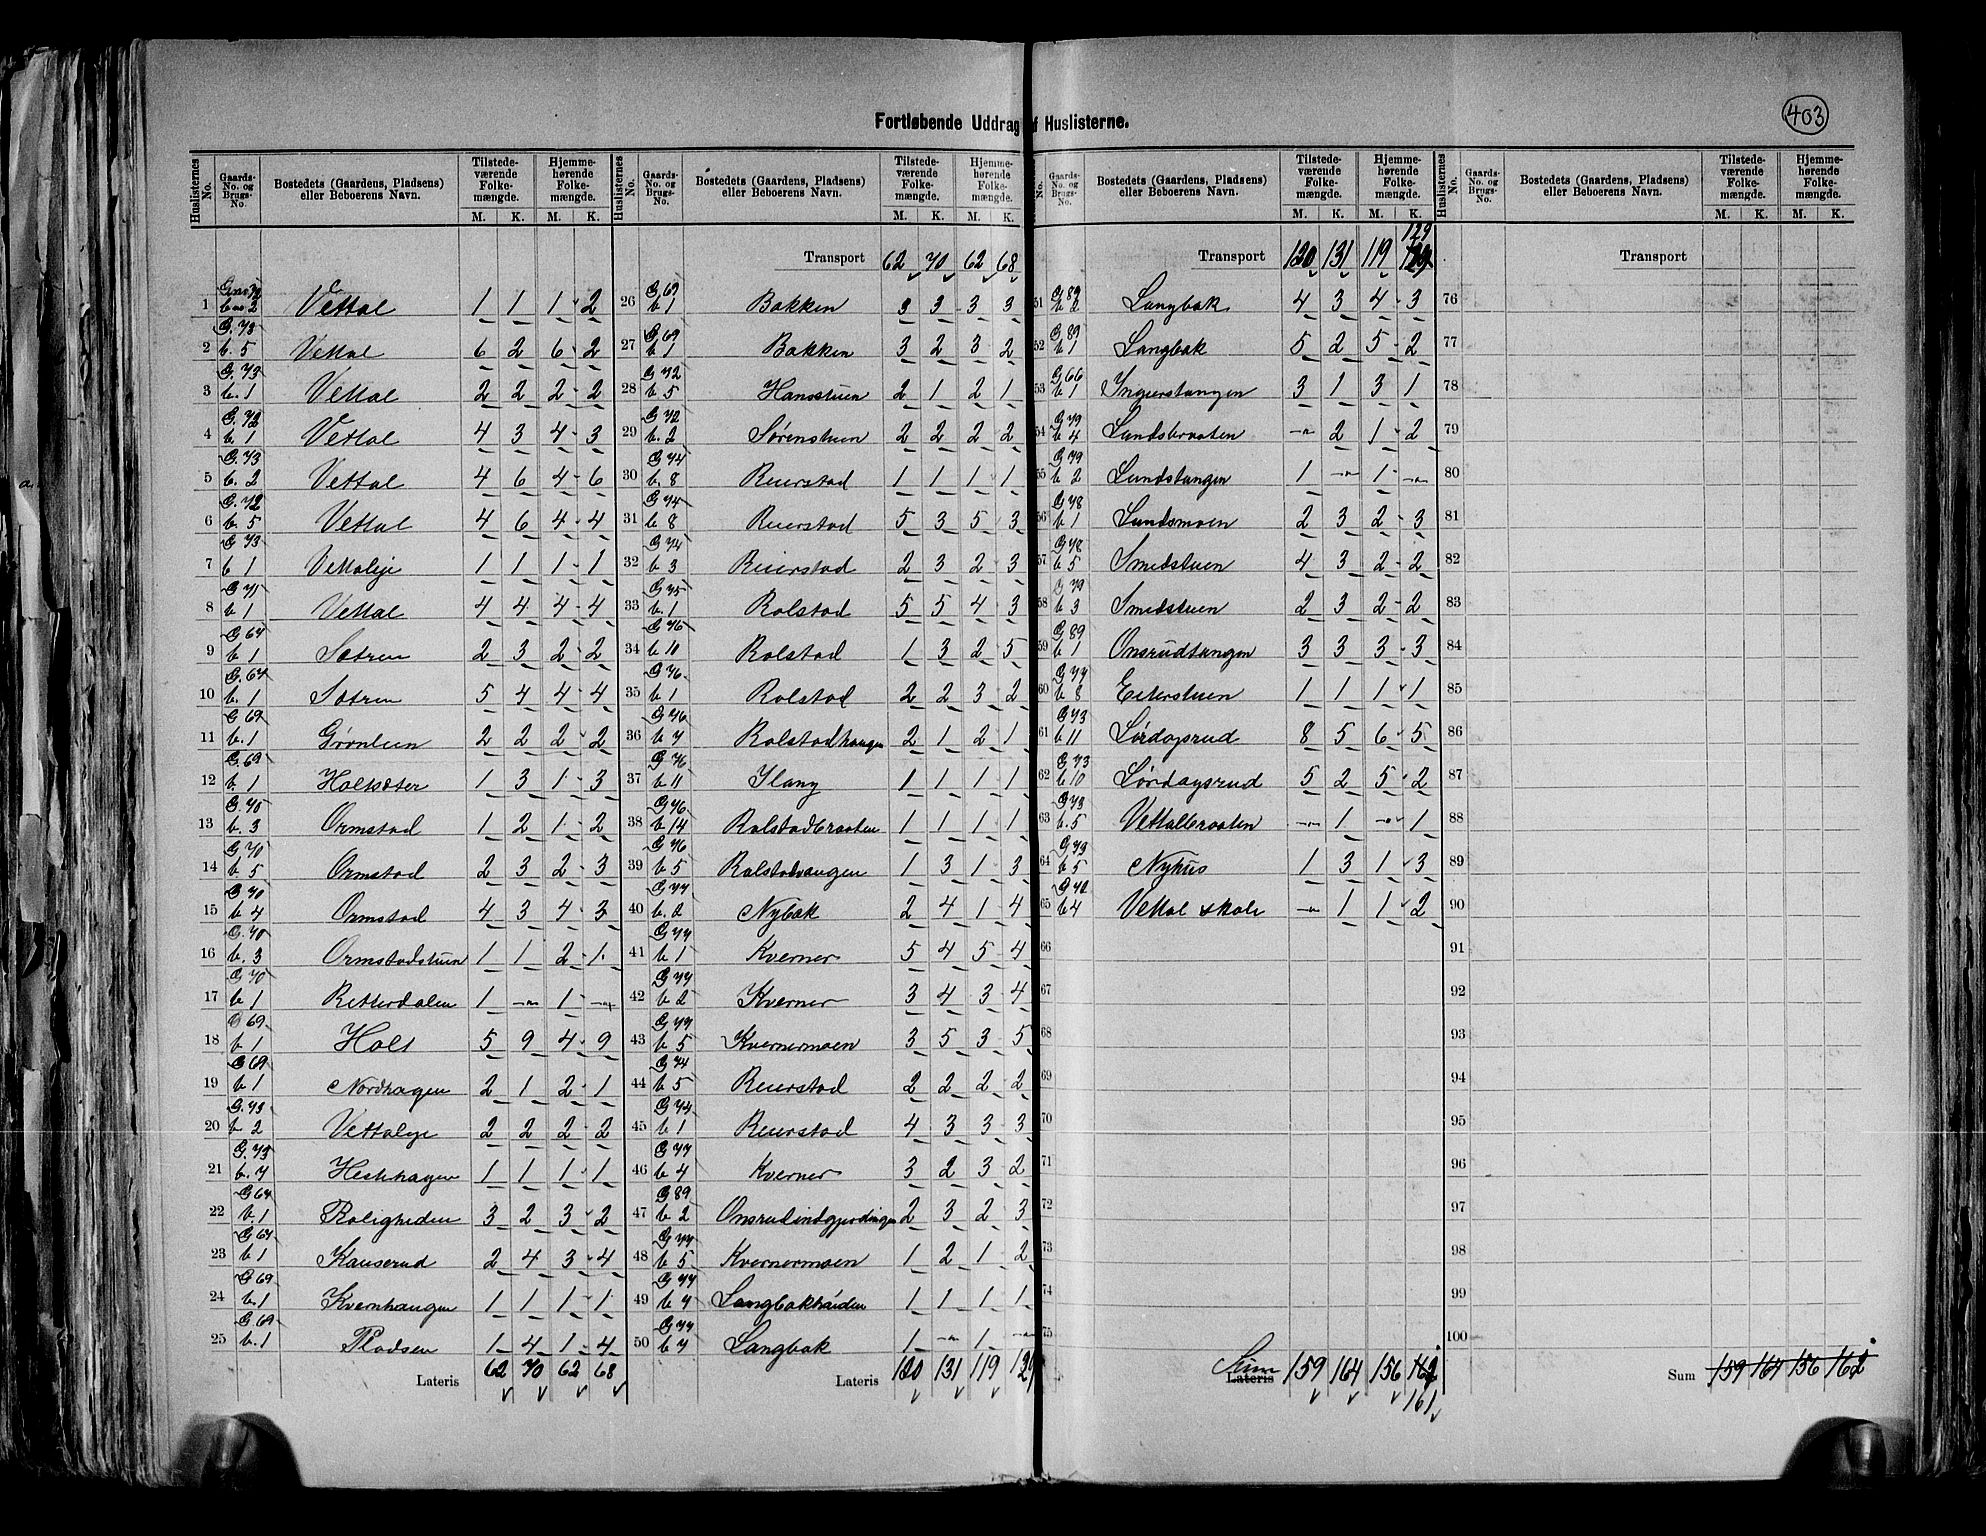 403
Fortløbende Uddrag af Huslisterne.
Huslisternes No. Gaards-No. og Brugs-No. Bostedets (Gaardens, Pladsens) eller Beboerens Navn. Tilstede-værende Folke-mængde. M. K. Hjemme-hørende Folke-mængde. M. K.
1 G.no 72 b.no 2 Vettal 1 1 1 2
2 G. 73 b. 5 Vettal 6 2 6 2
3 G. 73 b. 1 Vettal 2 2 2 2
4 G. 72 b. 1 Vettal 4 3 4 3
5 G. 73 b. 2 Vettal 4 6 4 6
6 G. 72 b. 5 Vettal 4 6 4 4
7 G. 73 b 1 Vettaleje 1 1 1 1
8 G. 71 b. 1 Vettal 4 4 4 4
9 G 64 b 1 Sætren 2 3 2 2
10 G. 64 b. 1 Sætren 5 4 4 4
11 G 69 b. 1 Grønlien 2 2 2 2
12 G. 69 b. 1 Holtsæter 1 3 1 3
13 G. 70 b. 3 Ormstad 1 2 1 2
14 G. 70 b. 5 Ormstad 2 3 2 3
15 G. 70 b 4 Ormstad 4 3 4 3
16 G. 70 b. 3 Ormstadstuen 1 1 2 1
17 G 70 b 1 Retterdalen 1 -"- 1 -"-
18 G 69 b 1 Holt 5 9 4 9
19 G 69 b 1 Nordhagen 2 1 2 1
20 G. 73 b 2 Vettaleje 2 2 2 2
21 G. 73 b. 7 Hestehagen 1 1 1 1
22 G 64 b. 1 Roligheden 3 2 3 2
23 G 64 b 1 Kauserud 2 4 3 4
24 G 69 b. 1 Kvernhaugen 1 1 1 1
25 G. 69 b. 1 Pladsen 1 4 1 4
Lateris 62 70 62 68
Transport 62 70 62 68
26 G 69 b 1 Bakken 3 3 3 3
27 G 69 b 1 Bakken 3 2 3 2
28 G 72 b 5 Hansstuen 2 1 2 1
29 G 72 b. 2 Sørenstuen 2 2 2 2
30 G 74 b. 8 Reierstad 1 1 1 1
31 G 74 b 8 Reierstad 5 3 5 3
32 G 74 b 3 Reierstad 2 3 2 3
33 G 75 b. 1 Rolstad 5 5 4 3
34 G 76 b 10 Rolstad 1 3 2 5
35 G 76 b 1 Rolstad 2 2 3 2
36 G 76 b 7 Rolstadhaugen 2 1 2 1
37 G 76 b 11 Ilang 1 1 1 1
38 G 76 b 14 Rolstadbraaten 1 1 1 1
39 G 76 b 5 Rolstadvangen 1 3 1 3
40 G 77 b. 2 Nybak 2 4 1 4
41 G 77 b 1 Kverner 5 4 5 4
42 G 77 b 2 Kverner 3 4 3 4
43 G 77 b 5 Kvernermoen 3 5 3 5
44 G 74 b 5 Reierstad 2 2 2 2
45 G 74 b 1 Reierstad 4 3 3 3
46 G 77 b 4 Kverner 3 2 3 2
47 G 89 b 2 Onsrudindgjerdingen 2 3 2 3
48 G 77 b 5 Kvernermoen 1 2 1 2
49 G 77 b 7 Langbakheiden 1 1 1 1
50 G 77 b 7 Langbak 1 -"- 1 -"-
Lateris 120 131 119 129
Transport 120 131 119 129
51 G 89 b 2 Langbak 4 3 4 3
52 G 89 b 1 Langbak 5 2 5 2
53 G 66 b 1 Ingierstangen 3 1 3 1
54 G 79 b 4 Lundsbraaten -"- 2 1 2
55 G 79 b 2 Lundstangen 1 -"- 1 -"-
56 G 78 b 1 Lundsmoen 2 3 2 3
57 G 78 b 5 Smedstuen 4 3 2 2
58 G 79 b 3 Smedstuen 2 3 2 2
59 G 89 b 1 Onsrudtangen 3 3 3 3
60 G 77 b 8 Eiterstuen 1 1 1 1
61 G 73 b 11 Lørdagsrud 8 5 6 5
62 G 73 b 10 Lørdagsrud 5 2 5 2
63 G 73 b. 5 Vettalbraaten -"- 1 -"- 1
64 G 73 b 5 Nyhus 1 3 1 3
65 G 72 b 4 Vettal skole -"- 1 1 2
66
67
68
69
70
71
72
73
74
75
Sum Lateris 159 164 156 162
161
Transport
76
77
78
79
80
81
82
83
84
85
86
87
88
89
90
91
92
93
94
95
96
97
98
99
100
Sum 159 164 156 162